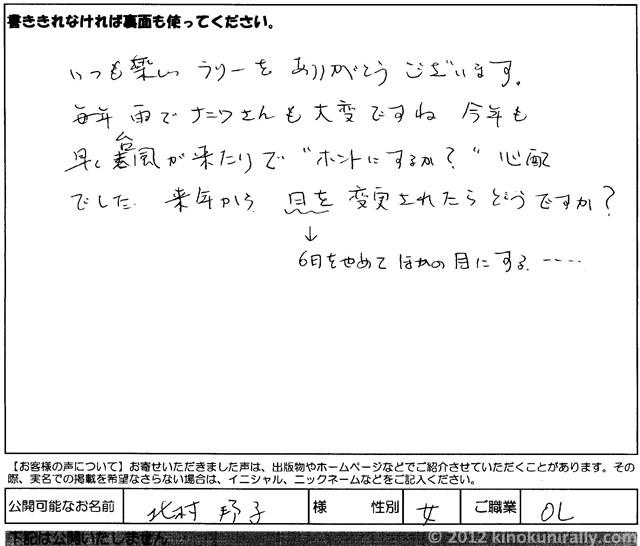 書ききれなければ裏面も使ってください。
いつも楽しい ラリーを ありがとう ございます。
毎年 雨で ナニワさんも 大変ですね 今年も
早く 台風が 来たりで “ホントにするか?” 心配
でした 来年から 月を 変更されたら どうですか?
↓
6月をやめて ほかの 月にする ‥‥
【お客様の声について】お寄せいただきました声は、出版物やホームページなどでご紹介させていただくことがあります。その
際、実名での掲載を希望なさらない場合は、イニシャル、ニックネームなどをご記入ください。
公開可能なお名前 北村 邦子 様 性別 女 ご職業 OL
下記は公開いたしません
© 2012 kinokunirally.com